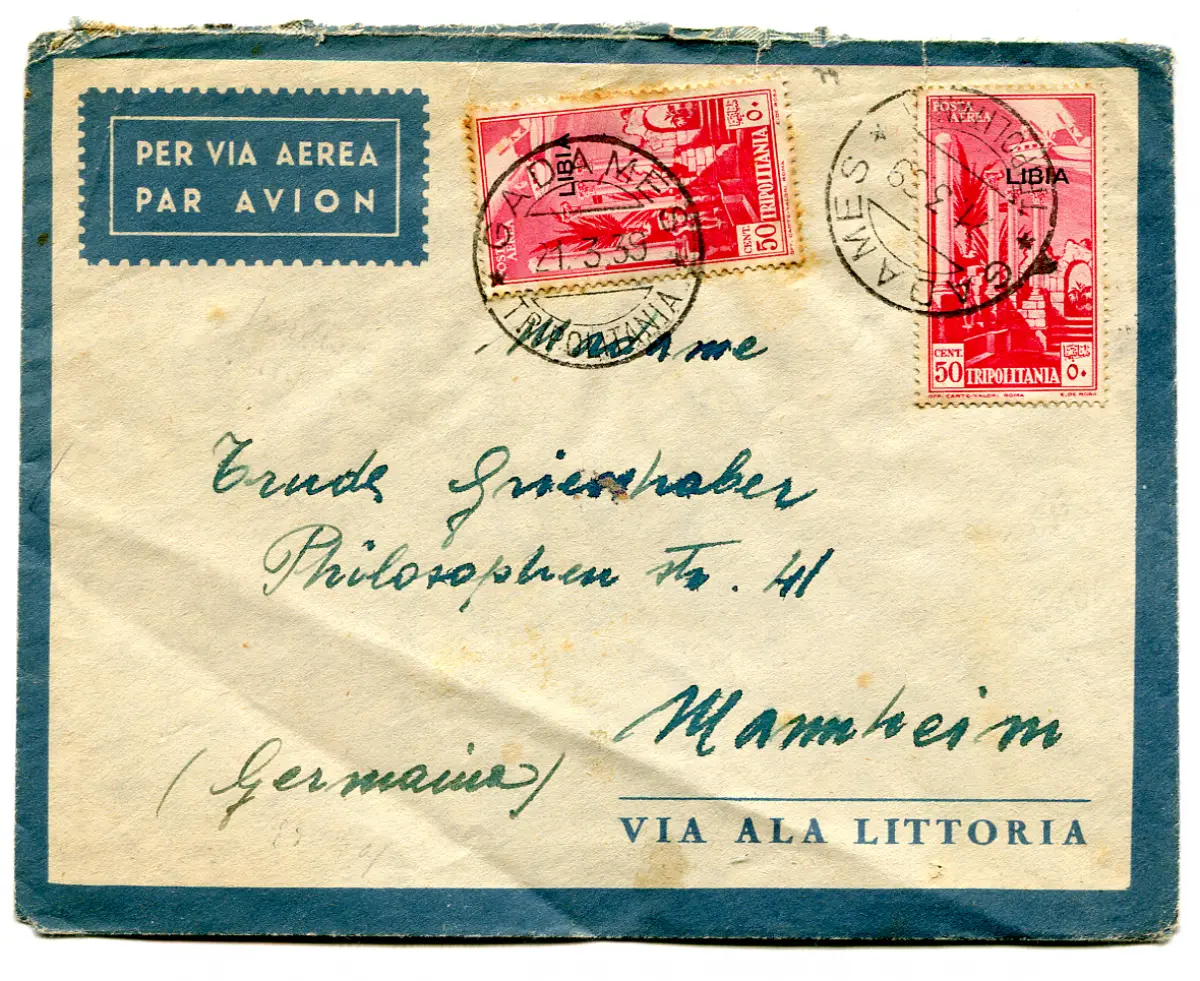 PER VIA AEREA
PAR AVION
POSTA
AEREA
LIBIA
CENT.
50 TRIPOLITANIA ٥٠
GADAMES
21.3.39
TRIPOLITANIA
POSTA
AEREA
LIBIA
CENT.
50 TRIPOLITANIA ٥٠
OFF. CARTE-VALORI ROMA
GADAMES
TRIPOLITANIA
Madame
Trude Grieshaber
Philosophen str. 41
Mannheim
(Germania)
VIA ALA LITTORIA